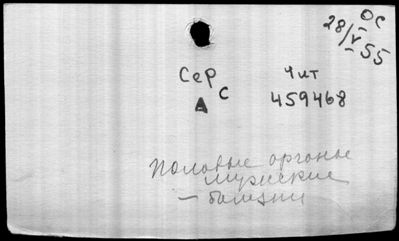 ОС
28/V 55
Сер
С
А
Чит
459468
Половые органы
мужские
— болезни